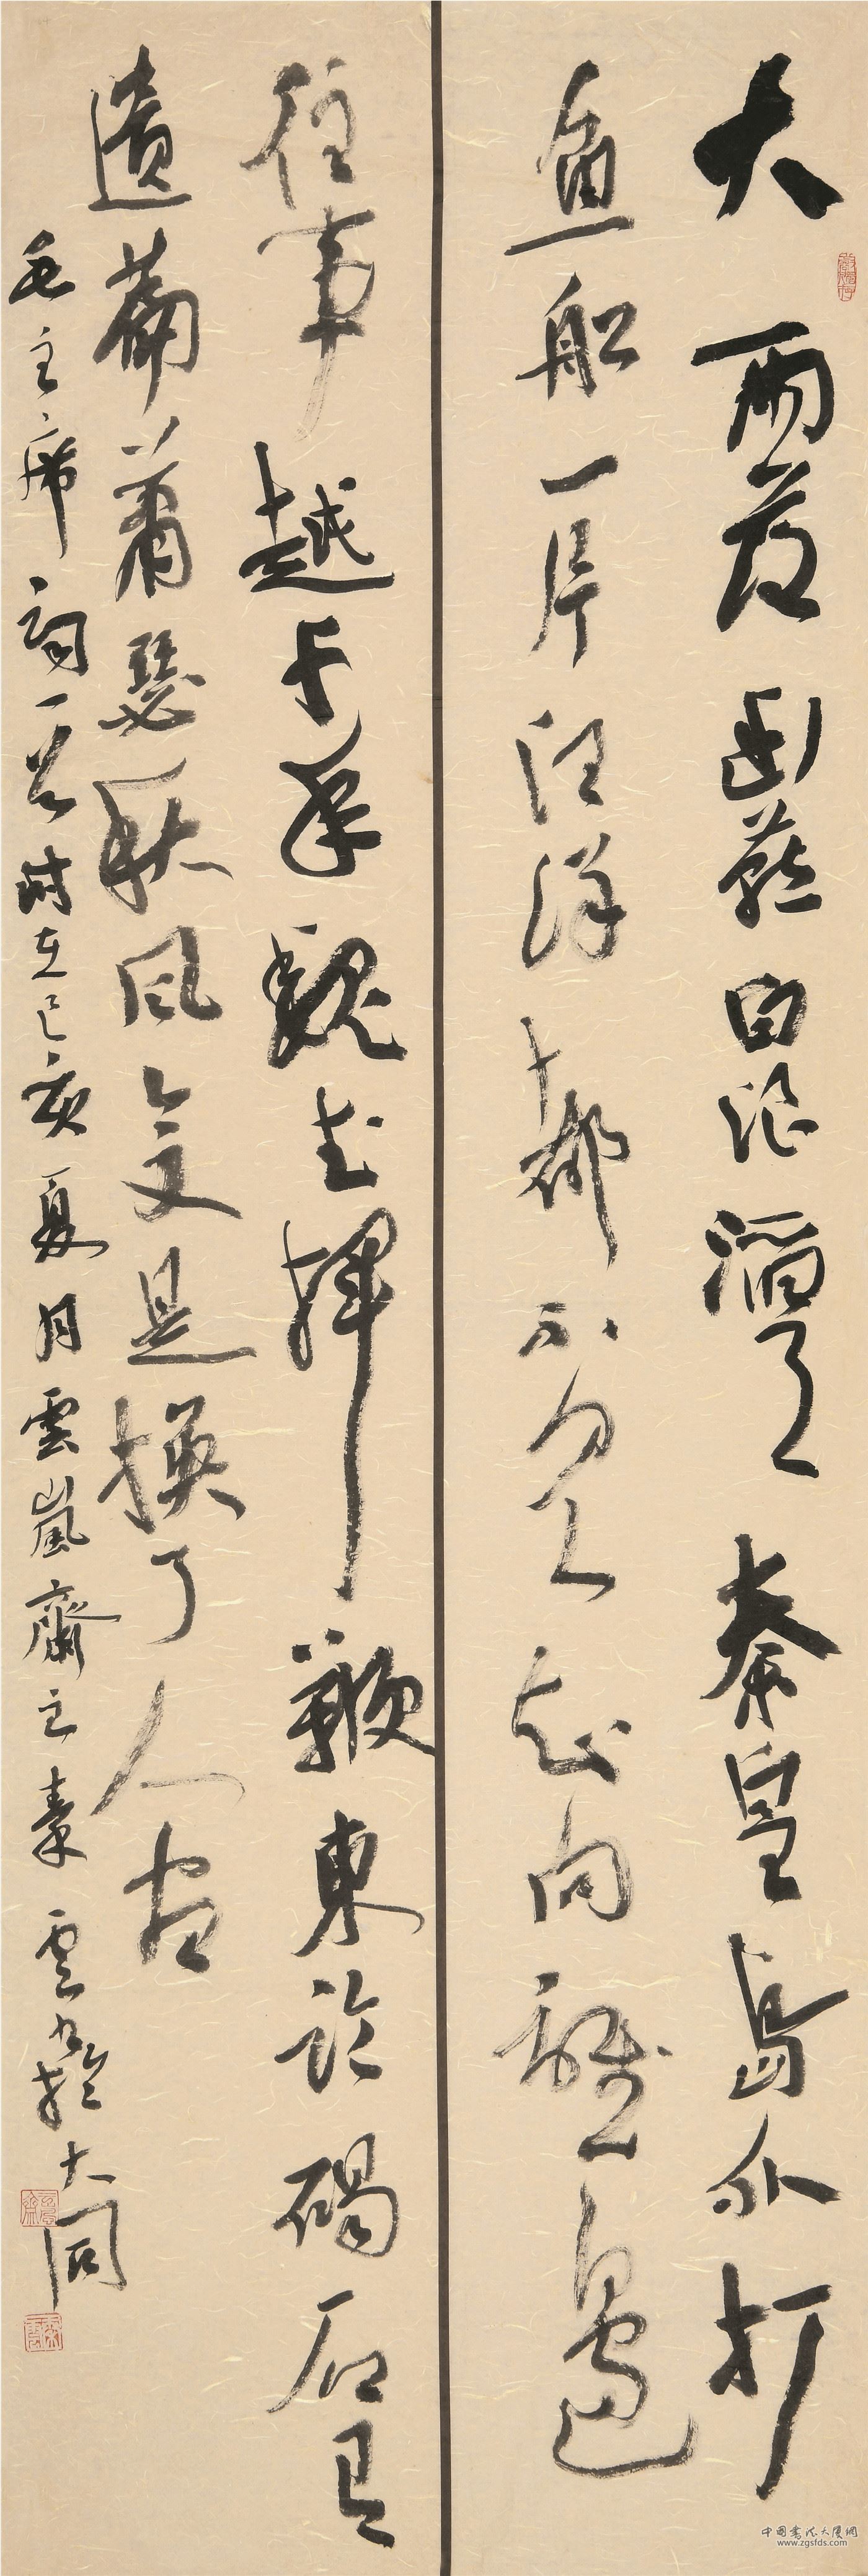 大雨落幽燕白浪滔天秦皇島外打
魚船一片汪洋都不見知向誰邊
往事越千年魏武揮鞭東臨碣石有
遺篇蕭瑟秋風今又是換了人間
毛主席詞一首時在己亥夏月雲嵐齋主秦雲於大同
中國書法大厦網
www.zgsfds.com